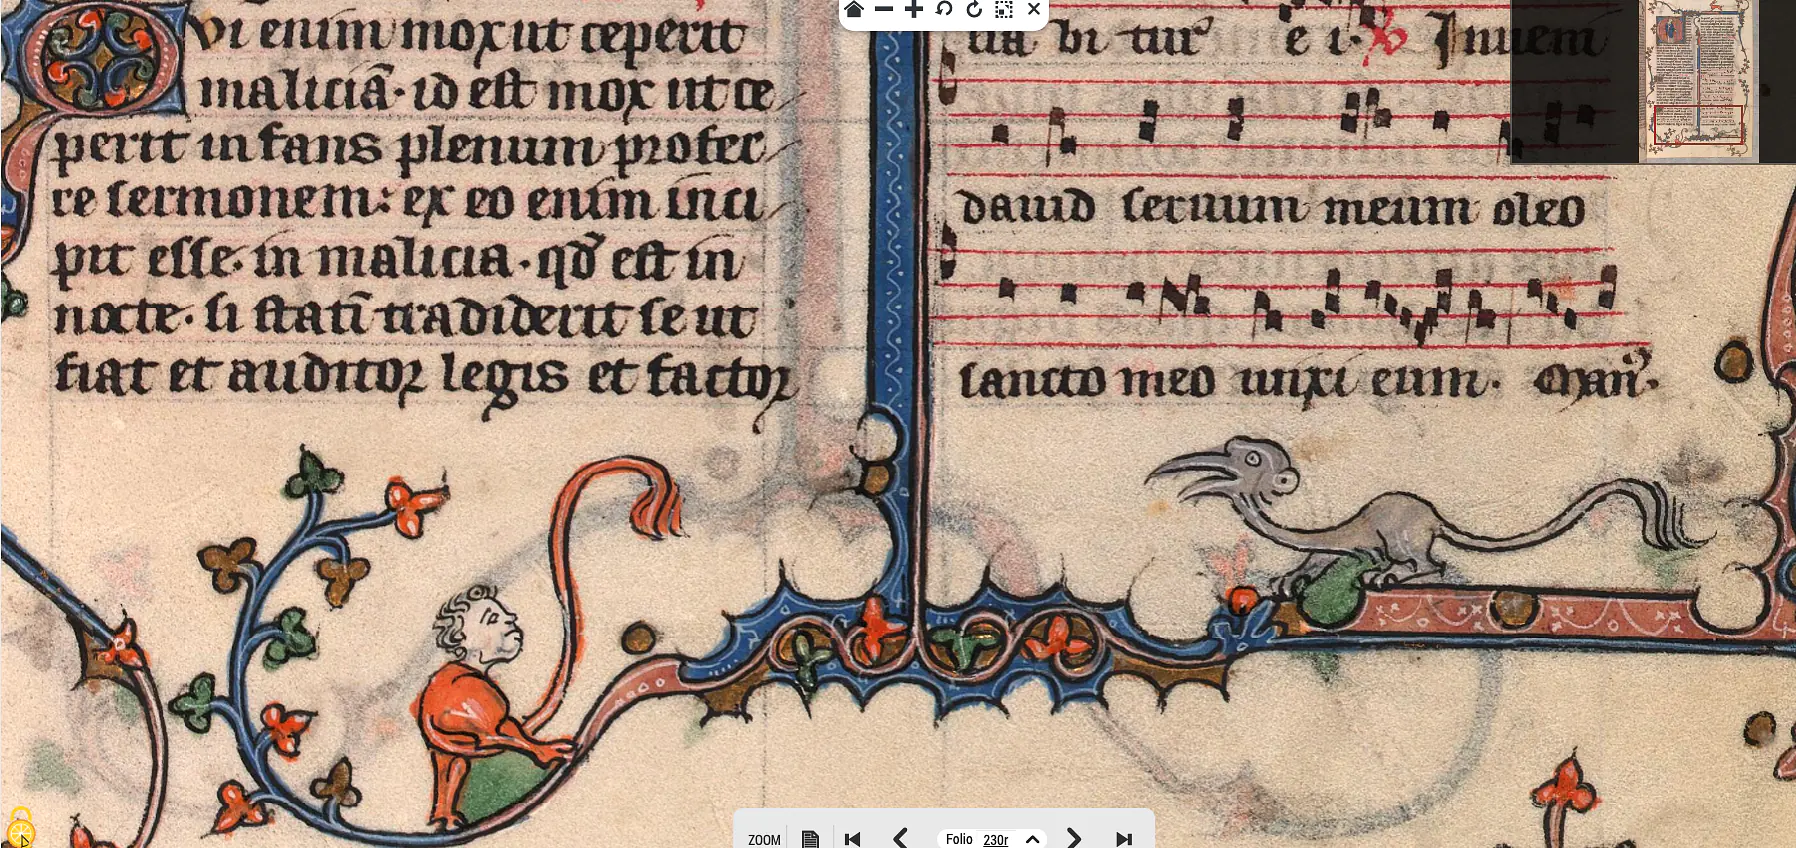 Vi enim mox ut ceperit
maliciā· id est mox ut ce
perit infans plenum profer
re sermonem: ex eo enim inci
pit esse· in malicia· qd̄ est in
nocte· si statī tradiderit se ut
fiat et auditor legis et factor
e i· Inueni
dauid seruum meum oleo
sancto meo unxi eum·
ZOOM
Folio 230r